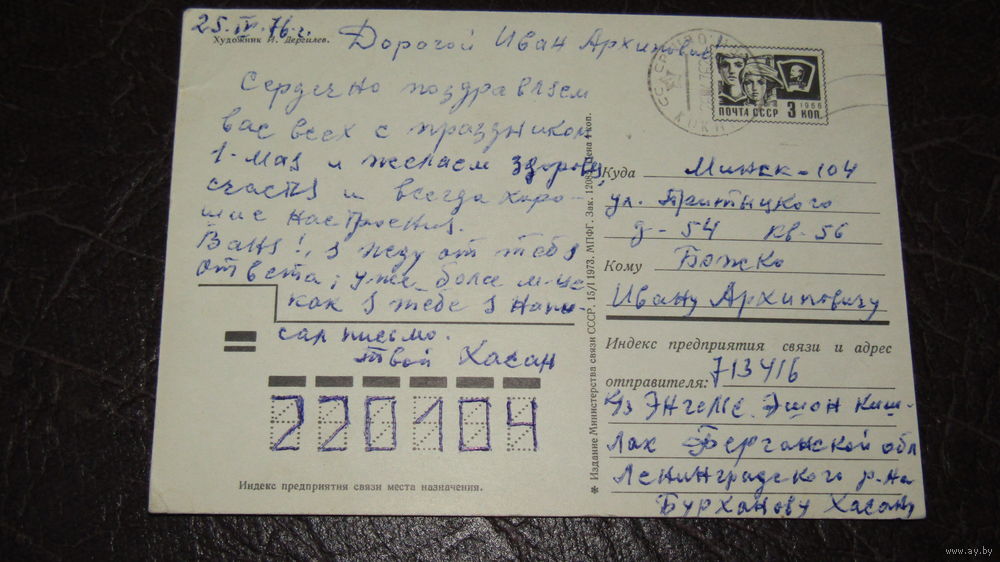 25.IV.76 г.
Художник И. Дергилев.
Дорогой Иван Архипович!
Сердечно поздравляем
вас всех с праздником
1-мая и желаем здоровья,
счастя и всегда хоро-
шие настроения.
Ваня!, я жду от тебя
ответа; уже боле м-ца
как я тебе я напи-
сал письмо.
твой Хасан
СССР
ПОЧТА СССР 3 КОП.
1966
Куда Минск-104
ул. Притыцкого
д-54 кв-56
Кому Божко
Ивану Архиповичу
Индекс предприятия связи и адрес
отправителя: 713416
Уз Эшон киш-
лак Ферганской обл
Ленинградского р-на
Бурханову Хасану
220104
Индекс предприятия связи места назначения.
* Издание Министерства связи СССР. 15/I 1973. МПФГ. Зак. Цена 4 коп.
www.ay.by